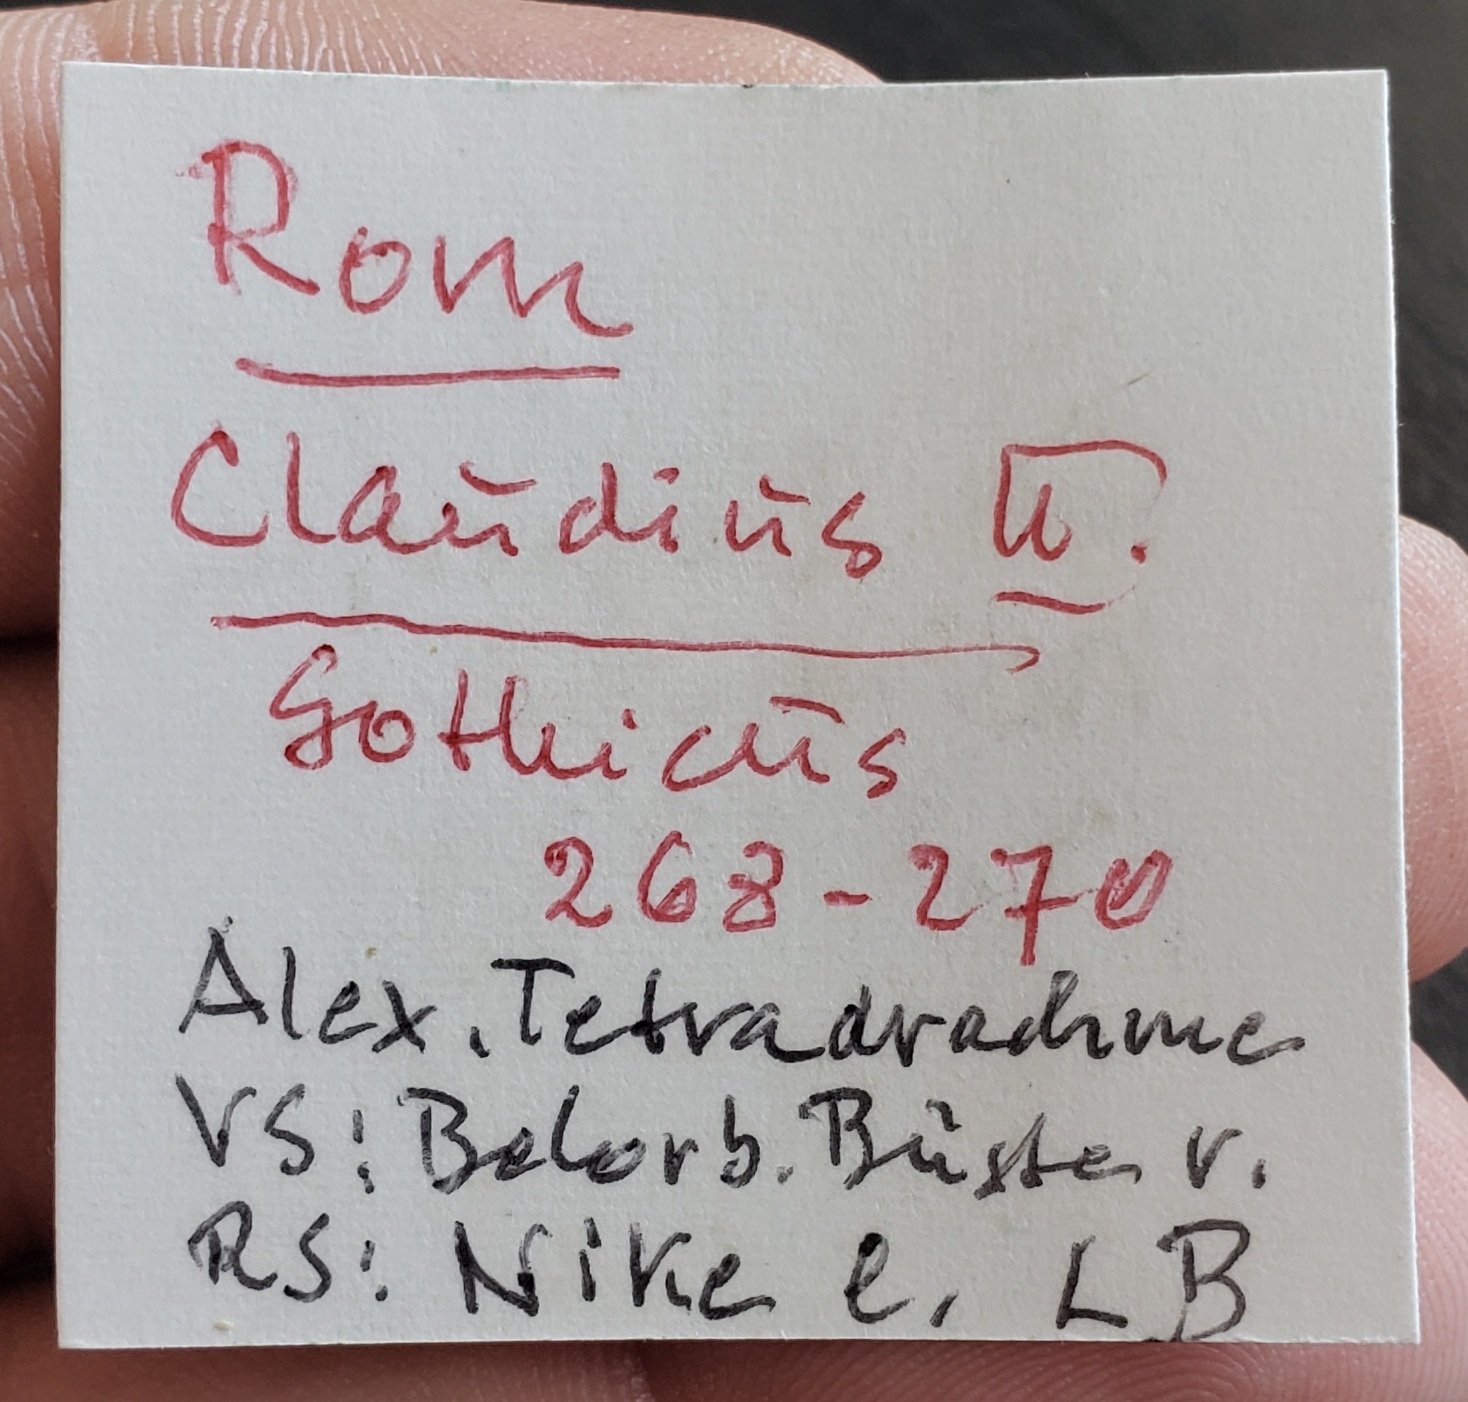 Rom
Claudius II.
Gothicus
268-270
Alex. Tetradrachme
VS: Belorb. Büste r.
RS: Nike l. L B